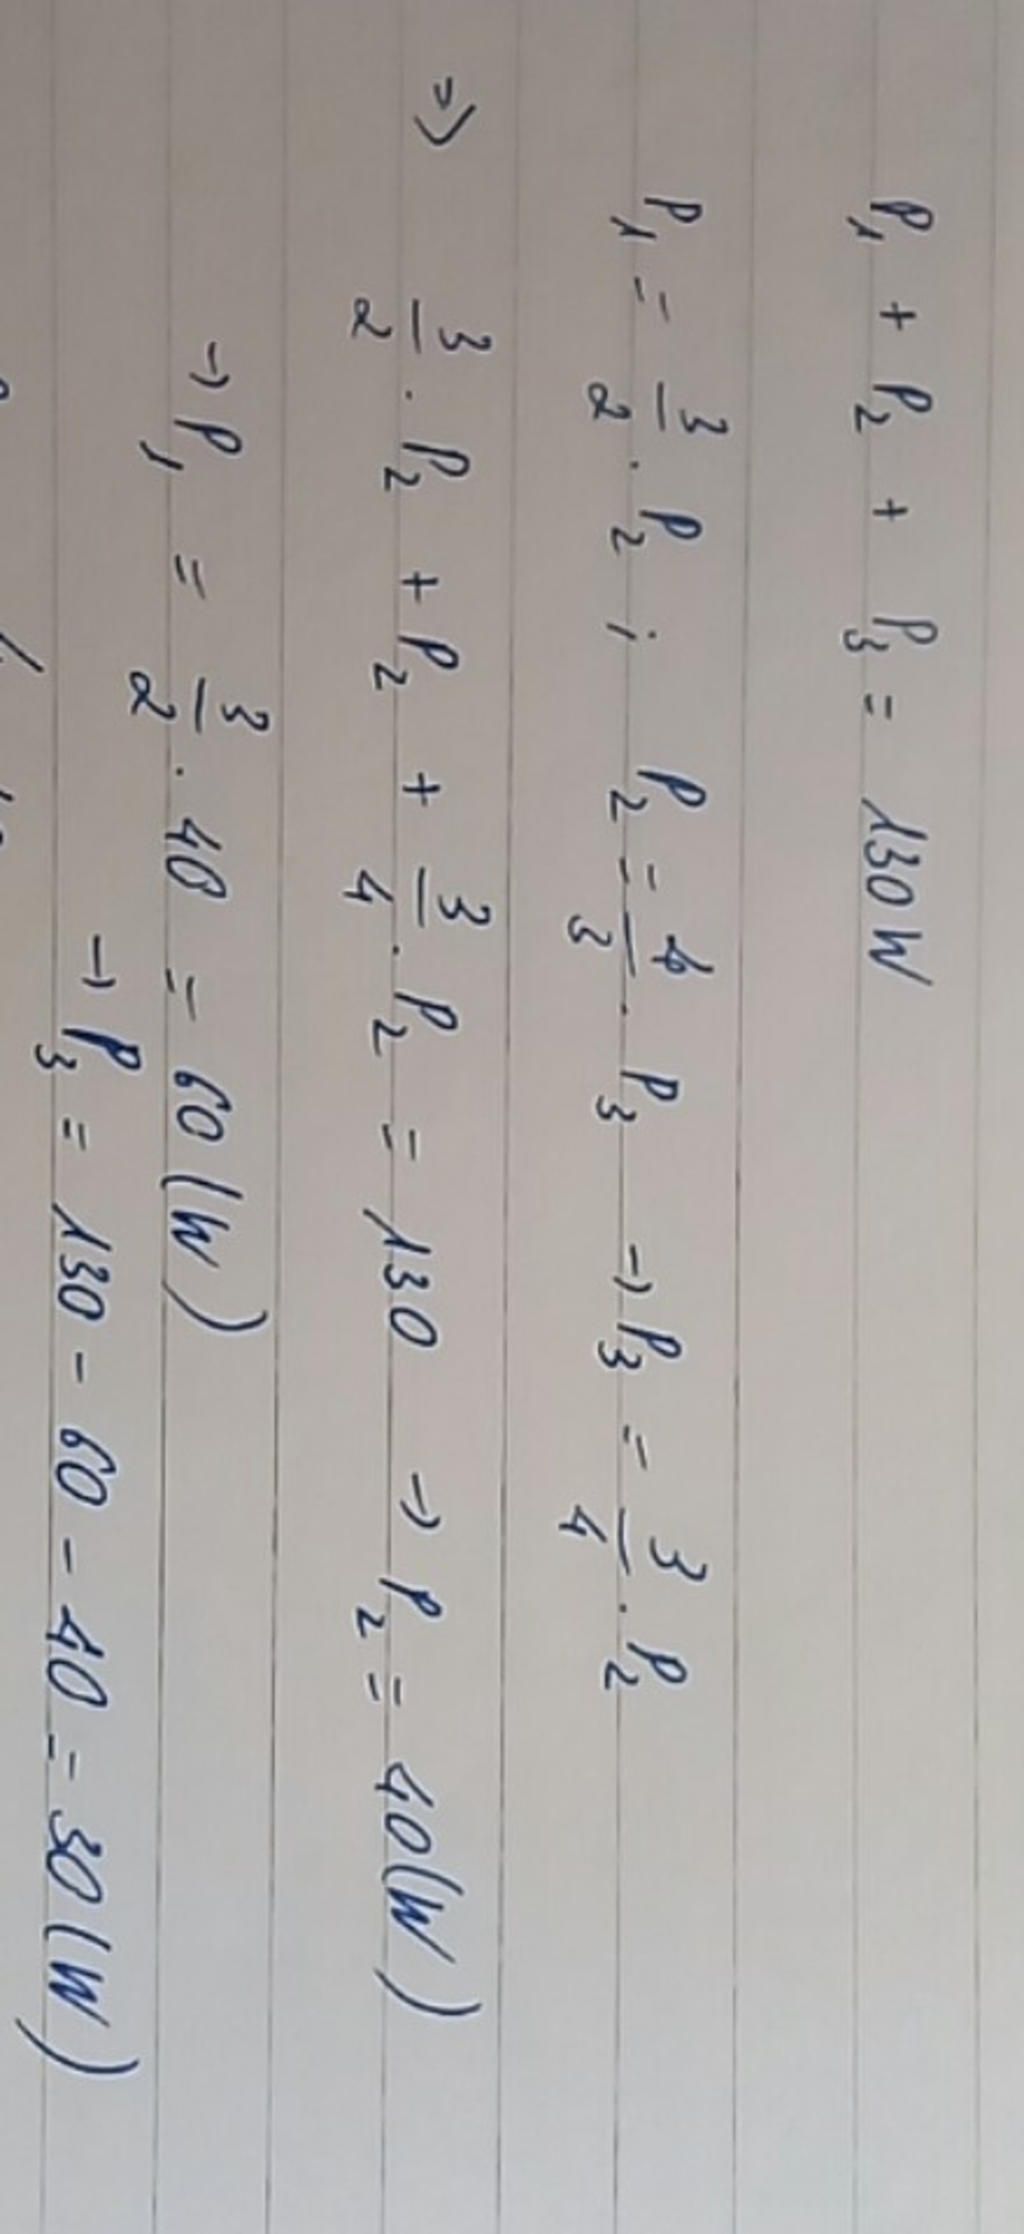 P₁ + P₂ + P₃ = 130W
P₁ = 3/2 . P₂ ; P₂ = 4/3 . P₃ → P₃ = 3/4 . P₂
=> 3/2 . P₂ + P₂ + 3/4 . P₂ = 130 → P₂ = 40(W)
→ P₁ = 3/2 . 40 = 60(W)
→ P₃ = 130 - 60 - 40 = 30(W)